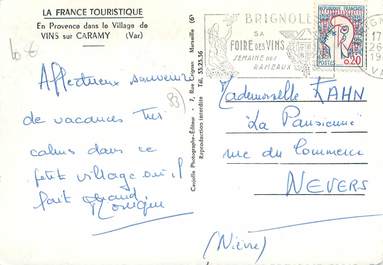 LA FRANCE TOURISTIQUE
En Provence dans le Village de
VINS sur CARAMY (Var)
10 €
83
Affectueux souvenir
de vacances très
calmes dans ce
petit village où il
fait chaud
Monique
Castella Photographe-Éditeur - 7, Rue Grignan Marseille (6e)
Reproduction interdite Tél. 53.25.36
BRIGNOLES
SA
FOIRE DES VINS
SEMAINE DES
RAMEAUX
RÉPUBLIQUE FRANÇAISE
POSTES
0,20
17
26
19
Mademoiselle KAHN
"La Parisienne"
rue du Commerce
NEVERS
(Nièvre)